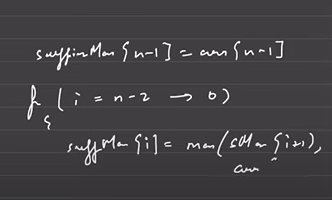 suffixMax[n-1] = arr[n-1]
for (i = n-2 → 0)
{
suffMax[i] = max(sMax[i+1],
arr